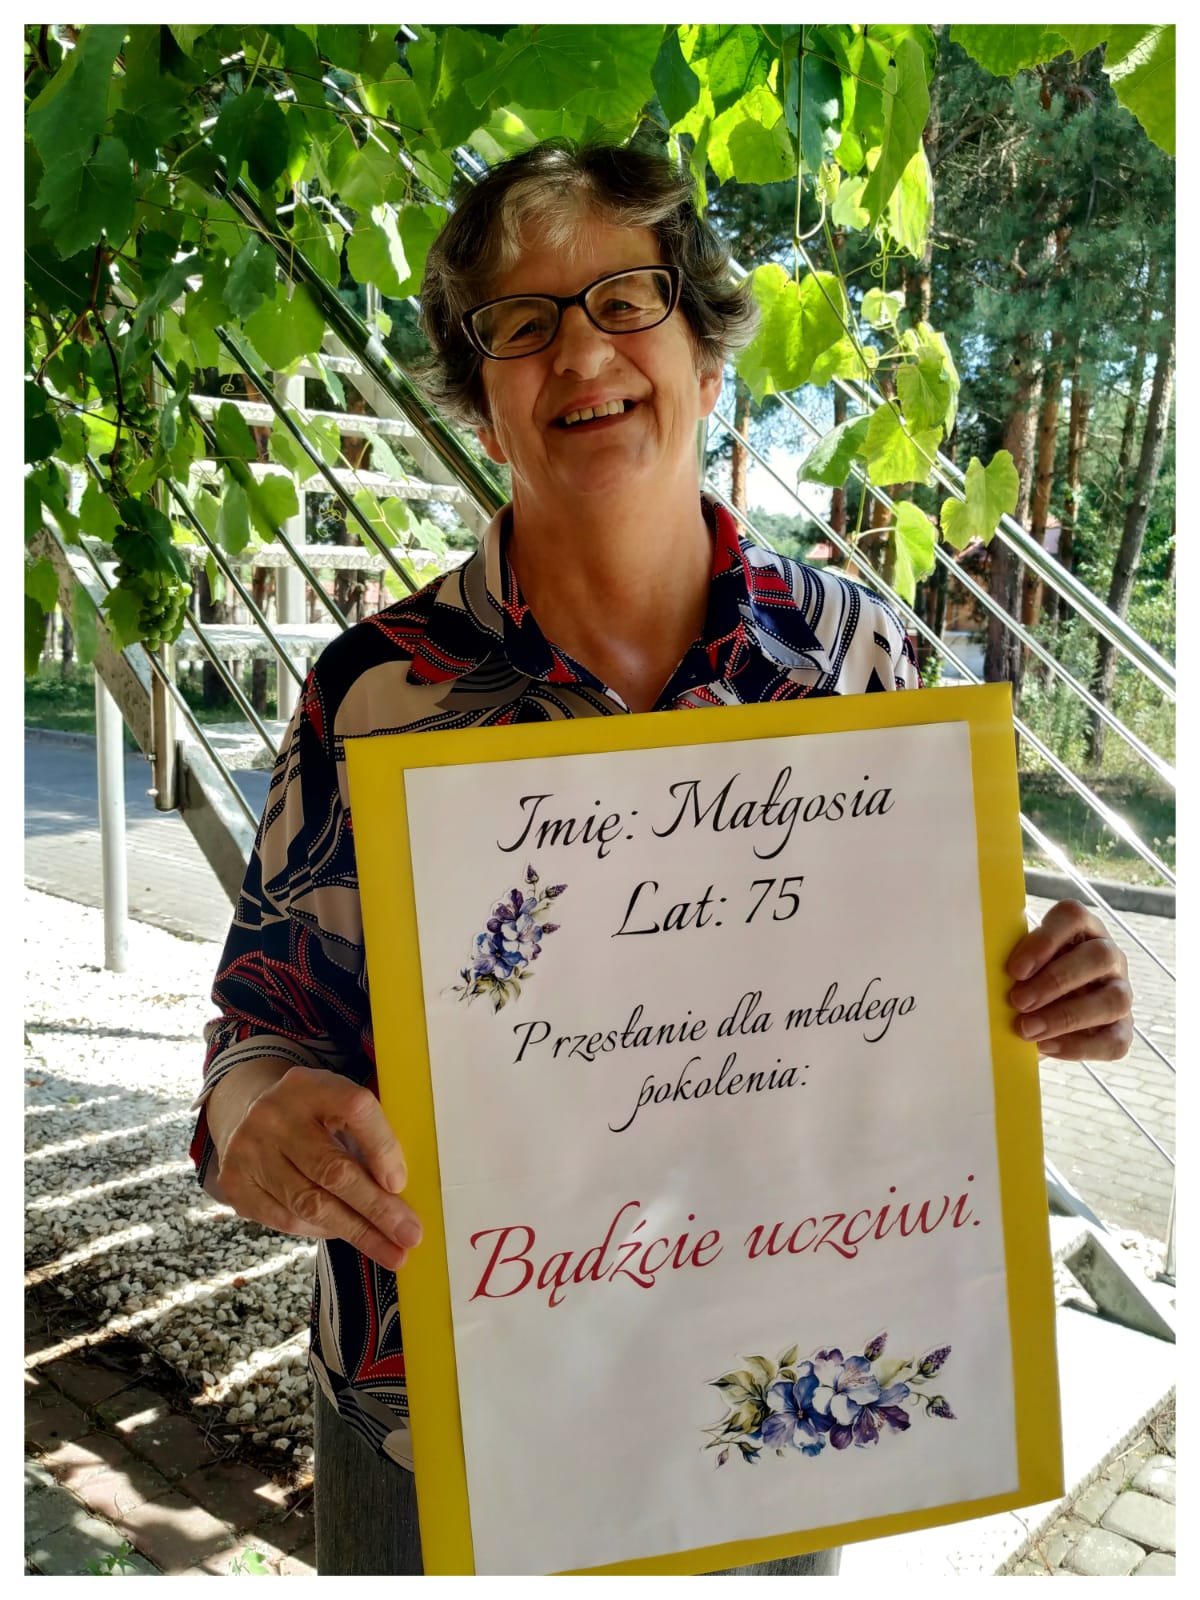 Imię: Małgosia
Lat: 75
Przesłanie dla młodego
pokolenia:
Bądźcie uczciwi.